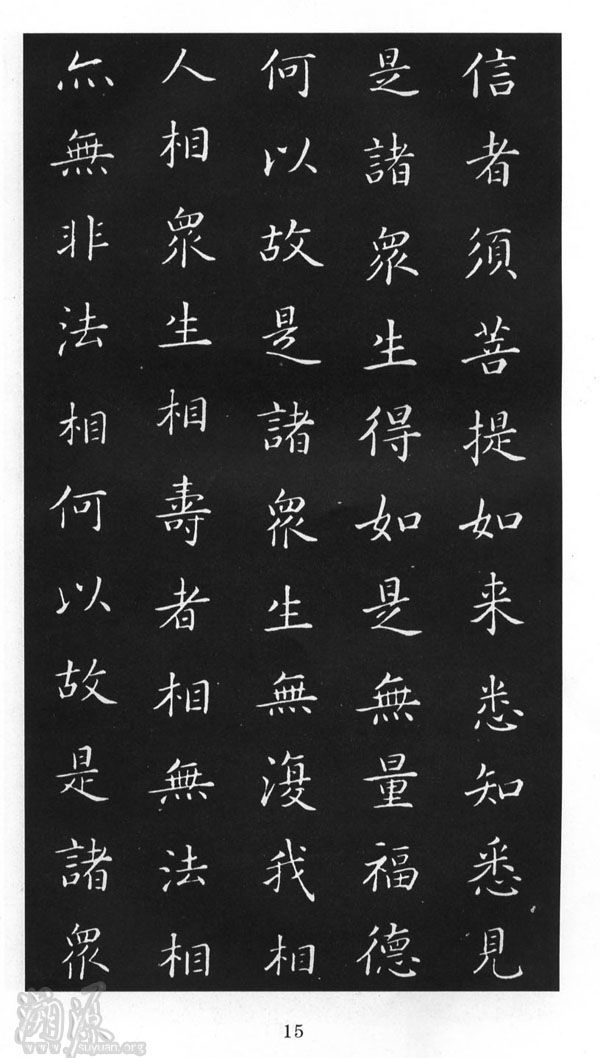 信者須菩提如来悉知悉見
是諸衆生得如是無量福德
何以故是諸衆生無復我相
人相衆生相壽者相無法相
亦無非法相何以故是諸衆
溯源
www.suyuan.org
15